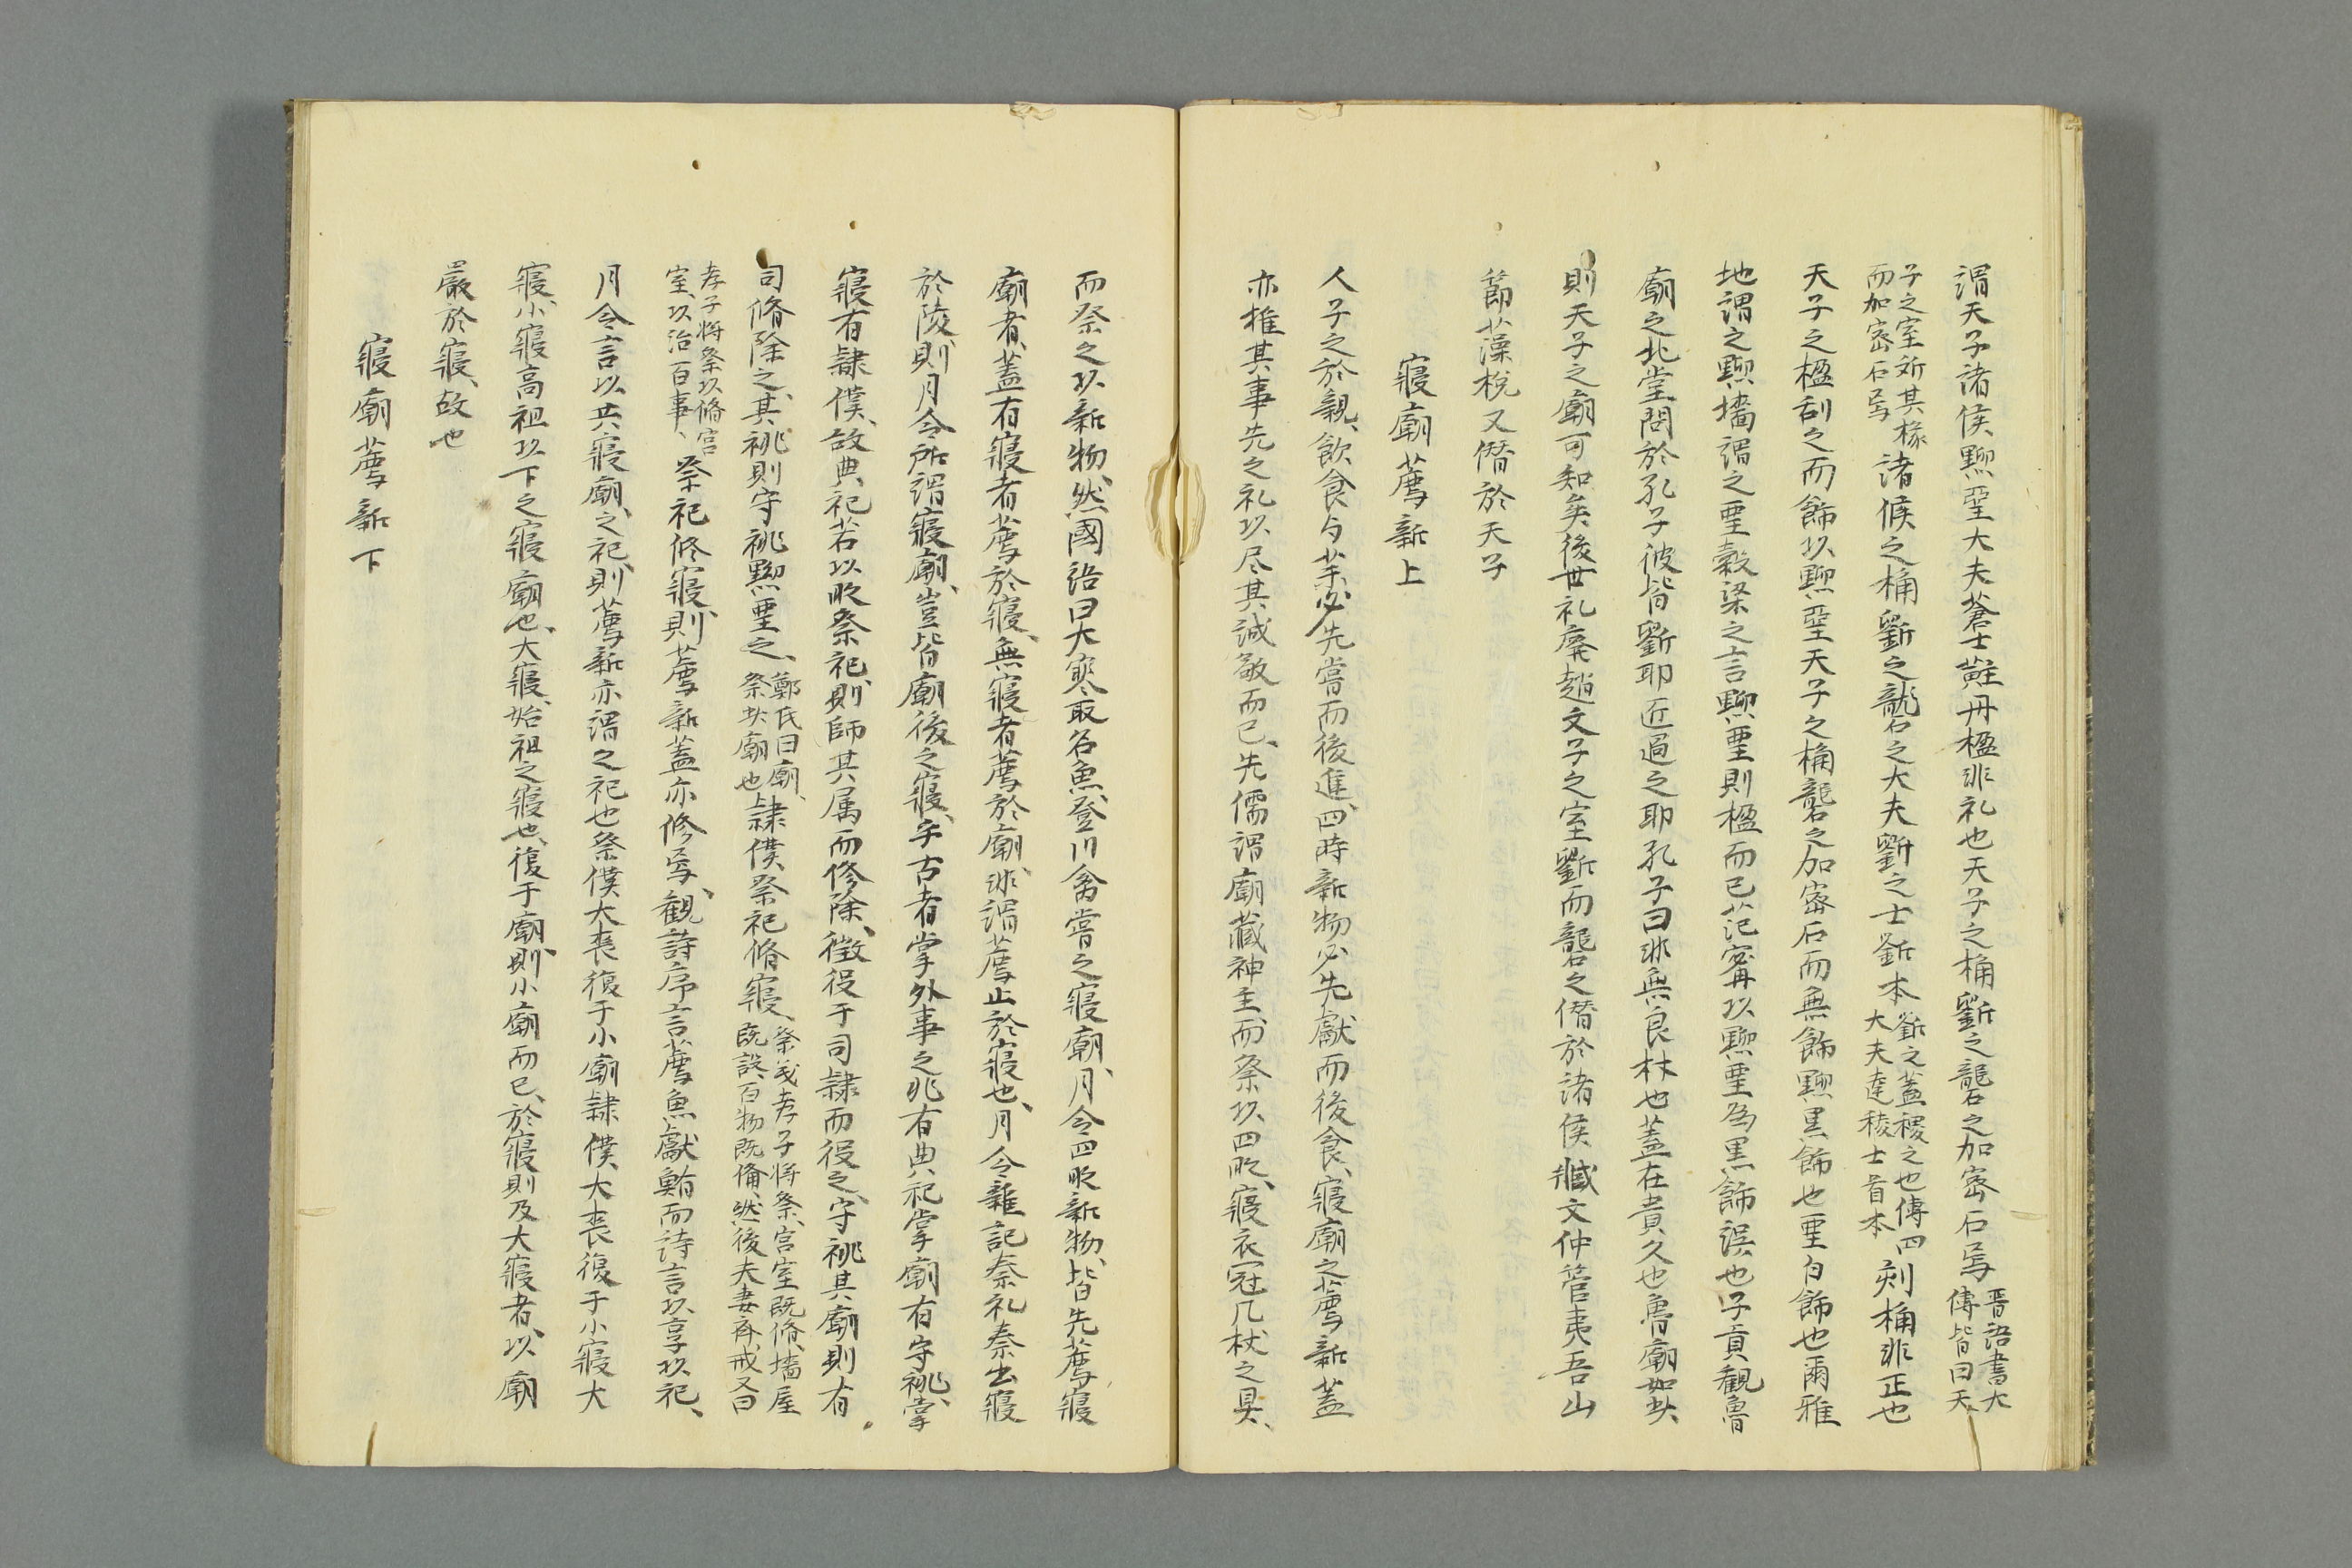 謂天子諸侯黝堊大夫蒼士黈丹楹非礼也天子之桷斲之礱之加密石焉晋語書大傳皆曰天
子之室斲其椽而加密石焉諸侯之桷斲之礱之大夫斲之士斲本斲之蓋稜之也傳曰大夫達稜士首本刻桷非正也
天子之楹刮之而飾以黝堊天子之桷礱之加密石而無飾黝黒飾也堊白飾也爾雅
地謂之黝墻謂之堊穀梁之言黝堊則楹而已范寗以黝堊為黒飾誤也子貢観魯
廟之北堂問於孔子彼皆斲耶匠過之耶孔子曰非無良材也蓋在貴久也魯廟如此
則天子之廟可知矣後世礼廃趙文子之室斲而礱之僭於諸侯臧文仲管夷吾山
節藻梲又僭於天子
寢廟薦新上
人子之於親飲食与薬必先嘗而後進四時新物必先獻而後食寢廟之薦新蓋
亦推其事先之礼以尽其誠敬而已先儒謂廟藏神主而祭以四時寢衣冠几杖之具
而祭之以新物然國語曰大寒取名魚登川禽嘗之寢廟月令四時新物皆先薦寢
廟者蓋有寢者薦於寢無寢者薦於廟非謂薦止於寢也月令雜記秦礼秦出寢
於陵則月令所謂寢廟豈皆廟後之寢乎古者掌外事之兆有典祀掌廟有守祧掌
寢有隷僕故典祀若以時祭祀則師其属而修除徴役于司隷而役之守祧其廟則有
司脩除之其祧則守祧黝堊之鄭氏曰廟祭此廟也隷僕祭祀脩寢祭義孝子将祭宮室既脩墻屋既設百物既備然後夫妻斎戒又曰
孝子将祭以脩宮室以治百事祭祀修寢則薦新蓋亦修焉観詩序言薦魚獻鮪而詩言以享以祀
月令言以共寢廟之祀則薦新亦謂之祀也祭僕大喪復于小廟隷僕大喪復于小寢大
寢小寢高祖以下之寢廟也大寢始祖之寢也復于廟則小廟而已於寢則及大寢者以廟
嚴於寢故也
寢廟薦新下